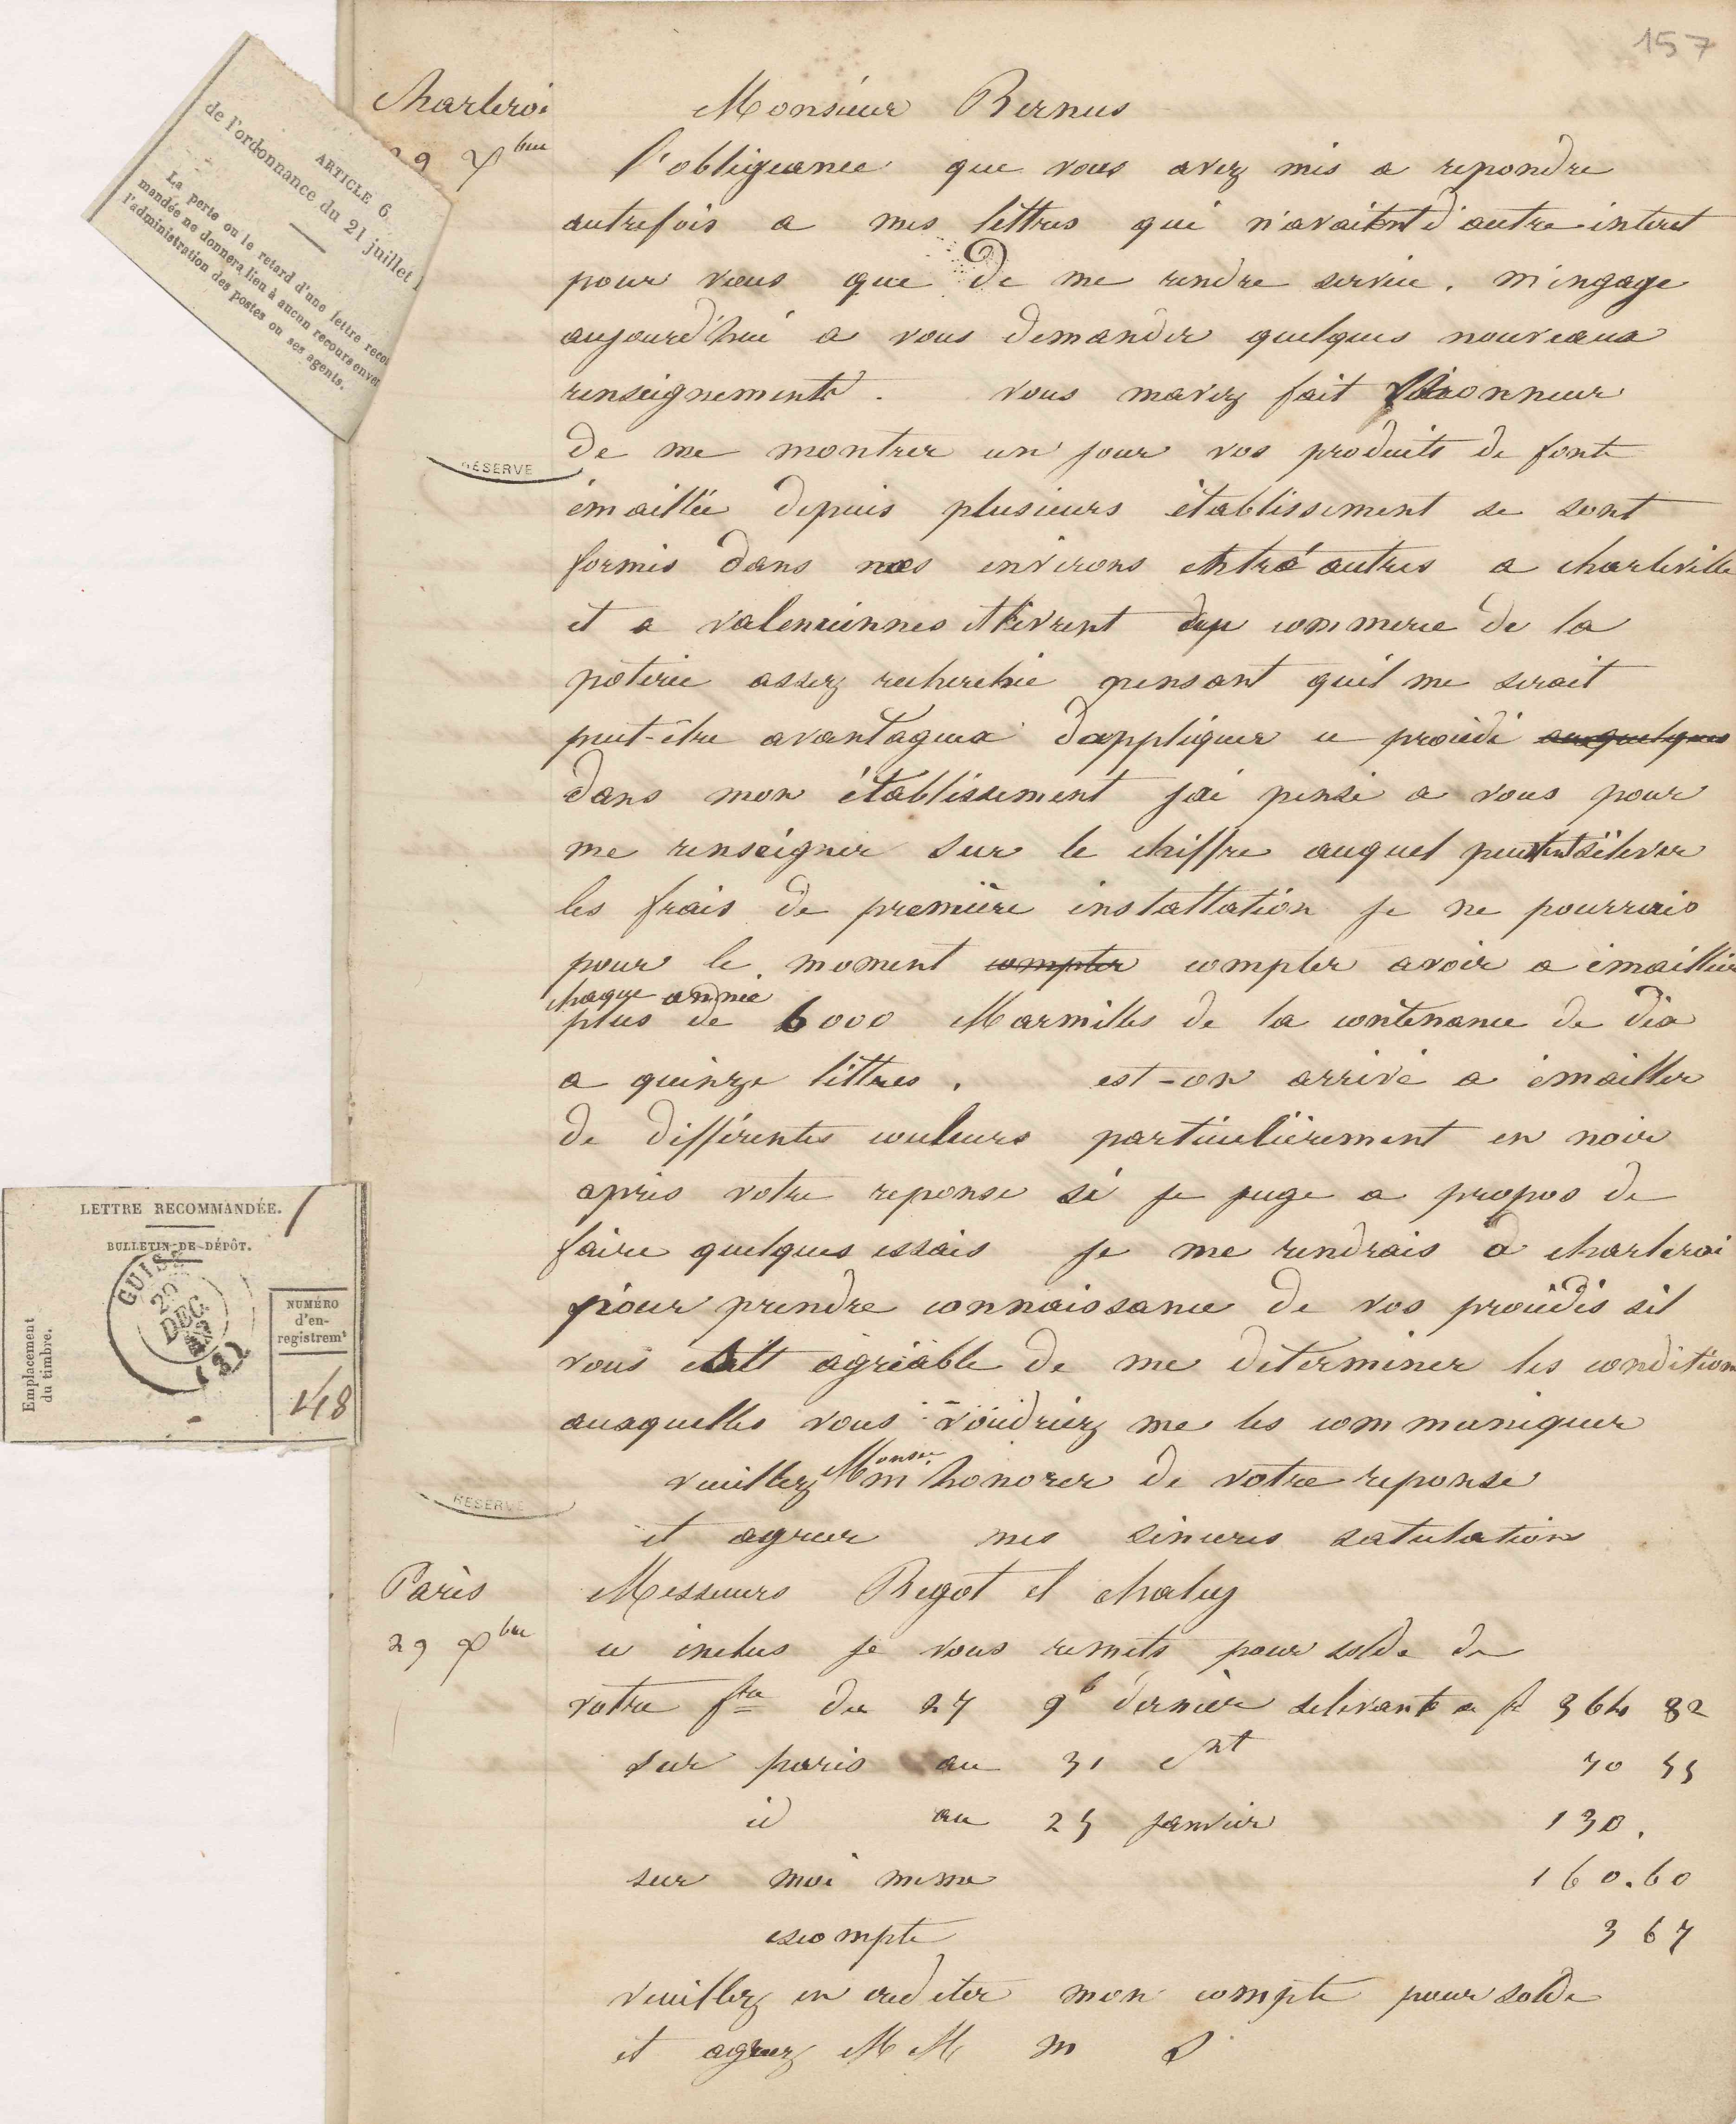 157
de l'ordonnance du 21 juillet 1
ARTICLE 6.
La perte ou le retard d'une lettre recom
mandée ne donnera lieu à aucun recours enver
l'administration des postes ou ses agents.
Charleroi
29 Xbre
Monsieur Bernus
l'obligeance que vous avez mis a repondre
autrefois a mes lettres qui n'avaient d'autre interet
pour vous que de me rendre service. m'engage
aujourd'hui a vous demander quelques nouveaux
renseignements. vous mavez fait l'honneur
de me montrer un jour vos produits de fonte
RÉSERVE
émaillée depuis plusieurs établissement se sont
formés dans nos environs entre autres a charleville
et a valenciennes et livrent au commerce de la
poterie assez recherchée pensant quil me serait
peut-être avantageux d'appliquer ce procédé au quelques
dans mon établissement jai pensé a vous pour
me renseigner sur le chiffre auquel peuvent s'élever
les frais de première installation je ne pourrais
pour le moment compter compter avoir a émailler
chaque année
plus de 6000 Marmites de la contenance de dix
a quinze littres. est-on arrivé a émailler
de différentes couleurs particulièrement en noir
après votre reponse si je juge a propos de
faire quelques essais je me rendrais à charleroi
pour prendre connaissance de vos procédés sil
vous était agréable de me determiner les condition
auxquelles vous voudriez me les communiquer
veuillez Monsr m'honorer de votre reponse
RÉSERVE
et agreer mes sinceres salutations
LETTRE RECOMMANDÉE.
BULLETIN DE DÉPÔT.
GUISE
DEC.
Emplacement
du timbre.
NUMÉRO
d'en-
registremt
148
Paris
29 Xbre
Messieurs Begot et chaluy
ci inclus je vous remets pour solde de
votre fre du 27 9b dernier selevant a f 364 82
sur paris au 31 Cnt 70 55
id au 25 janvier 130.
sur moi meme 160.60
escompte 3 67
veuillez en crediter mon compte pour solde
et agreez MM m S